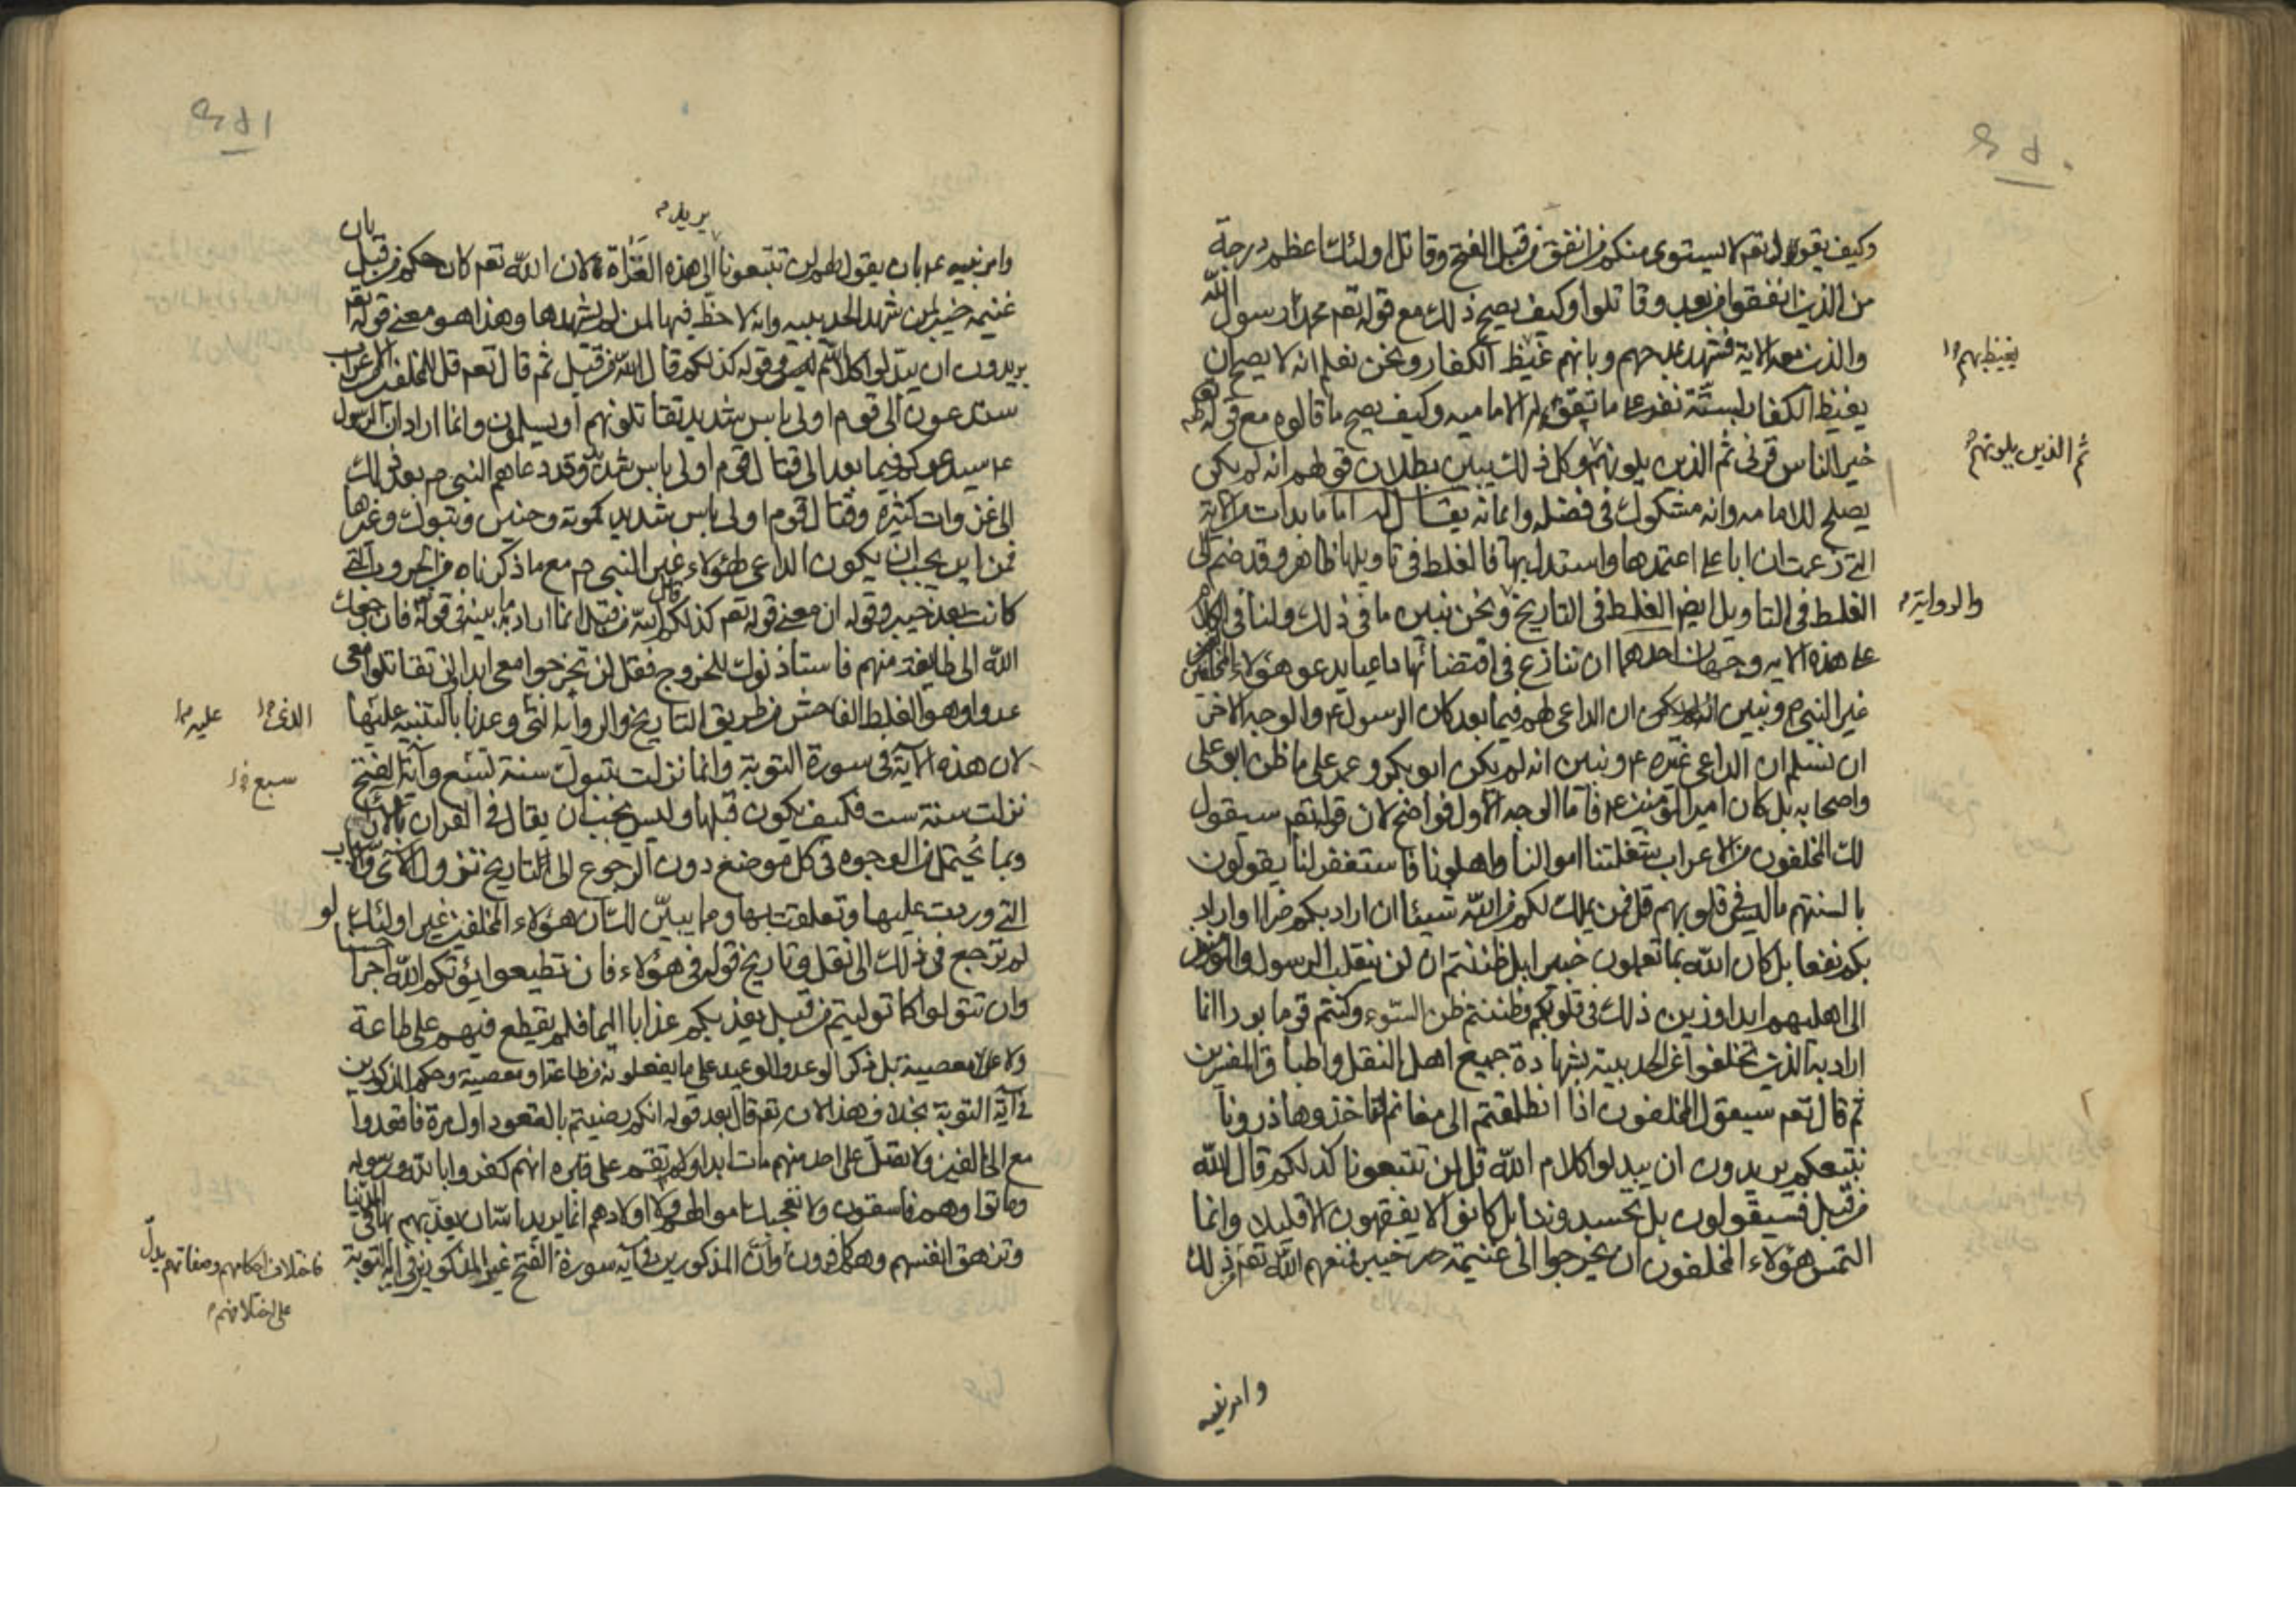 وكيف يقول تعم لا يستوى منكم من انفق من قبل الفتح وقاتل اولئك اعظم درجة
من الذين انفقوا من بعد وقاتلوا وكيف يصح ذلك مع قوله تعم محمد رسول الله
والذين معه الاية فشهد بمدحهم وبانهم غيظ الكفار ونحن نعلم انه لا يصح ان
يغيظ الكفار بستة نفر على ما تقوله الامامية وكيف يصح ما قالوه مع قوله
خير الناس قرنى ثم الذين يلونهم وكل ذلك يبين بطلان قولهم انه لم يكن
يصلح للامامه وانه مشكوك فى فضله وايمانه يقال له اما ما بدات به الاية
التى زعمت ان ابا على اعتمدها واستدل بها فالغلط فى تاويلها ظاهر وقد ضم الى
الغلط فى التاويل ايض الغلط فى التاريخ ونحن نبين ما فى ذلك ولنا فى الكلام
على هذه الاية وجهان احدهما ان تنازع فى اقتضائها داعيا يدعو هؤلاء المخلفين
غير النبى م ونبين ان الداعى لهم فيما بعد كان الرسول ع والوجه الاخر
ان نسلم ان الداعى غيره ع ونبين انه لم يكن ابو بكر وعمر على ما ظن ابو على
واصحابه بل كان امير المؤمنين ع فاما الوجه الاول فواضح لان قوله تعم سيقول
لك المخلفون من الاعراب شغلتنا اموالنا واهلونا فاستغفر لنا يقولون
بالسنتهم ما ليس فى قلوبهم قل فمن يملك لكم من الله شيئا ان اراد بكم ضرا او اراد
بكم نفعا بل كان الله بما تعملون خبيرا بل ظننتم ان لن ينقلب الرسول والمؤمنون
الى اهليهم ابدا وزين ذلك فى قلوبكم وظننتم ظن السوء وكنتم قوما بورا انما
اراد به الذين تخلفوا عن الحديبية بشهادة جميع اهل النقل واطباق المفسرين
ثم قال تعم سيقول المخلفون اذا انطلقتم الى مغانم لتاخذوها ذرونا
نتبعكم يريدون ان يبدلوا كلام الله قل لن تتبعونا كذلكم قال الله
من قبل فسيقولون بل تحسدوننا بل كانوا لا يفقهون الا قليلا وانما
التمس هؤلاء المخلفون ان يخرجوا الى غنيمة خيبر فمنعهم الله تعم من ذلك
وامر نبيه
يغيظ بهم
ثم الذين يلونهم
والرواية
يريد
وامر نبيه ع بان يقول لهم لن تتبعونا الى هذه الغزاة لان الله تعم كان حكم من قبل بان
غنيمة خيبر لمن شهد الحديبيه وانه لا حظ فيها لمن لم يشهدها وهذا هو معنى قوله تعم
يريدون ان يبدلوا كلام الله وقوله كذلكم قال الله من قبل ثم قال تعم قل للمخلفين من الاعراب
ستدعون الى قوم اولى باس شديد تقاتلونهم او يسلمون وانما اراد ان الرسول
ع سيدعوكم فيما بعد الى قتال قوم اولى باس شديد وقد دعاهم النبى م بعد ذلك
الى غزوات كثيرة وقتال قوم اولى باس شديد كموتة وحنين وتبوك وغيرها
فمن اين يجب ان يكون الداعى لهؤلاء غير النبى م مع ما ذكرناه من الحروب التى
كانت بعد خيبر وقوله ان معنى قوله تعم كذلكم قال الله من قبل انما اراد به ما بينه فى قوله فان رجعك
الله الى طائفة منهم فاستاذنوك للخروج فقل لن تخرجوا معى ابدا ولن تقاتلوا معى
عدوا وهو الغلط الفاحش من طريق التاريخ والرواية التى وعدنا بالتنبيه عليها
لان هذه الاية فى سورة التوبة وانما نزلت بتبوك سنة تسع واية الفتح
نزلت سنة ست فكيف يكون قبلها وليس يجب ان يقال فى القران بالاراء
وبما يحتمل من الوجوه فى كل موضع دون الرجوع الى التاريخ نزول الآى والاسباب
التى وردت عليها وتعلقت بها ومما يبين لك ان هؤلاء المخلفين غير اولئك لو
لم ترجع فى ذلك الى نقل وتاريخ قوله فى هؤلاء فان تطيعوا يؤتكم الله اجرا حسنا
وان تتولوا كما توليتم من قبل يعذبكم عذابا اليما فلم يقطع فيهم على طاعة
ولا على معصية بل ذكر الوعد والوعيد على ما يفعلونه من طاعة او معصية وحكم المذكورين
فى آية التوبة بخلاف هذا لانه تعم قال بعد قوله انكم رضيتم بالقعود اول مرة فاقعدوا
مع الخالفين ولا تصل على احد منهم مات ابدا ولا تقم على قبره انهم كفروا بالله ورسوله
وماتوا وهم فاسقون ولا تعجبك اموالهم ولا اولادهم انما يريد الله ان يعذبهم بها فى الدنيا
وتزهق انفسهم وهم كافرون وان المذكورين فى آية سورة الفتح غير المذكورين فى اية التوبة
الذى
عليه
سبع
فاختلاف احكامهم وصفاتهم يدل
على اختلافهم